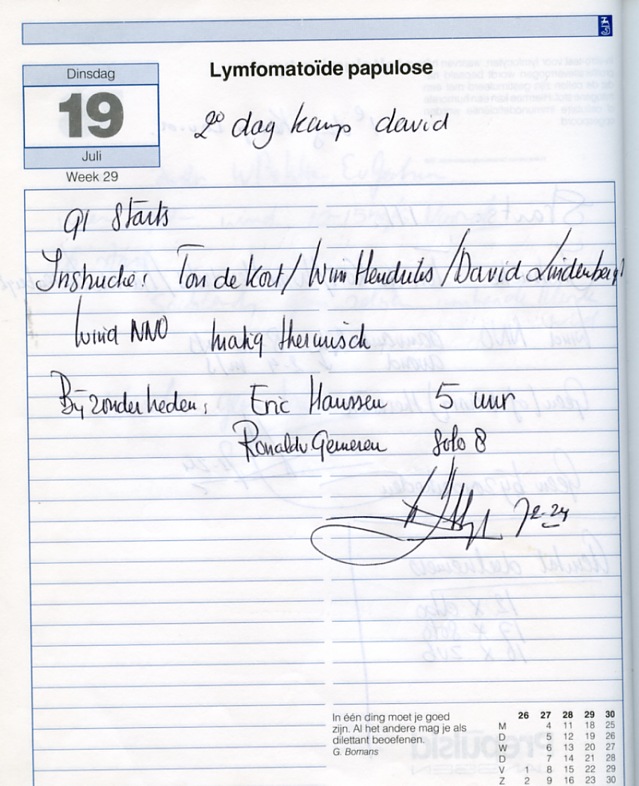 Dinsdag
19
Juli
Week 29
Lymfomatoïde papulose
2e dag kamp david
91 Starts
Instructie: Ton de Kort / Wim Hendriks / David Lindenberg
Wind NNO matig thermisch
Bijzonderheden: Eric Hanssen 5 uur
Ronald v Gemeren Solo 8
In één ding moet je goed
zijn. Al het andere mag je als
dilettant beoefenen.
G. Bomans
26 27 28 29 30
M 4 11 18 25
D 5 12 19 26
W 6 13 20 27
D 7 14 21 28
V 1 8 15 22 29
Z 2 9 16 23 30